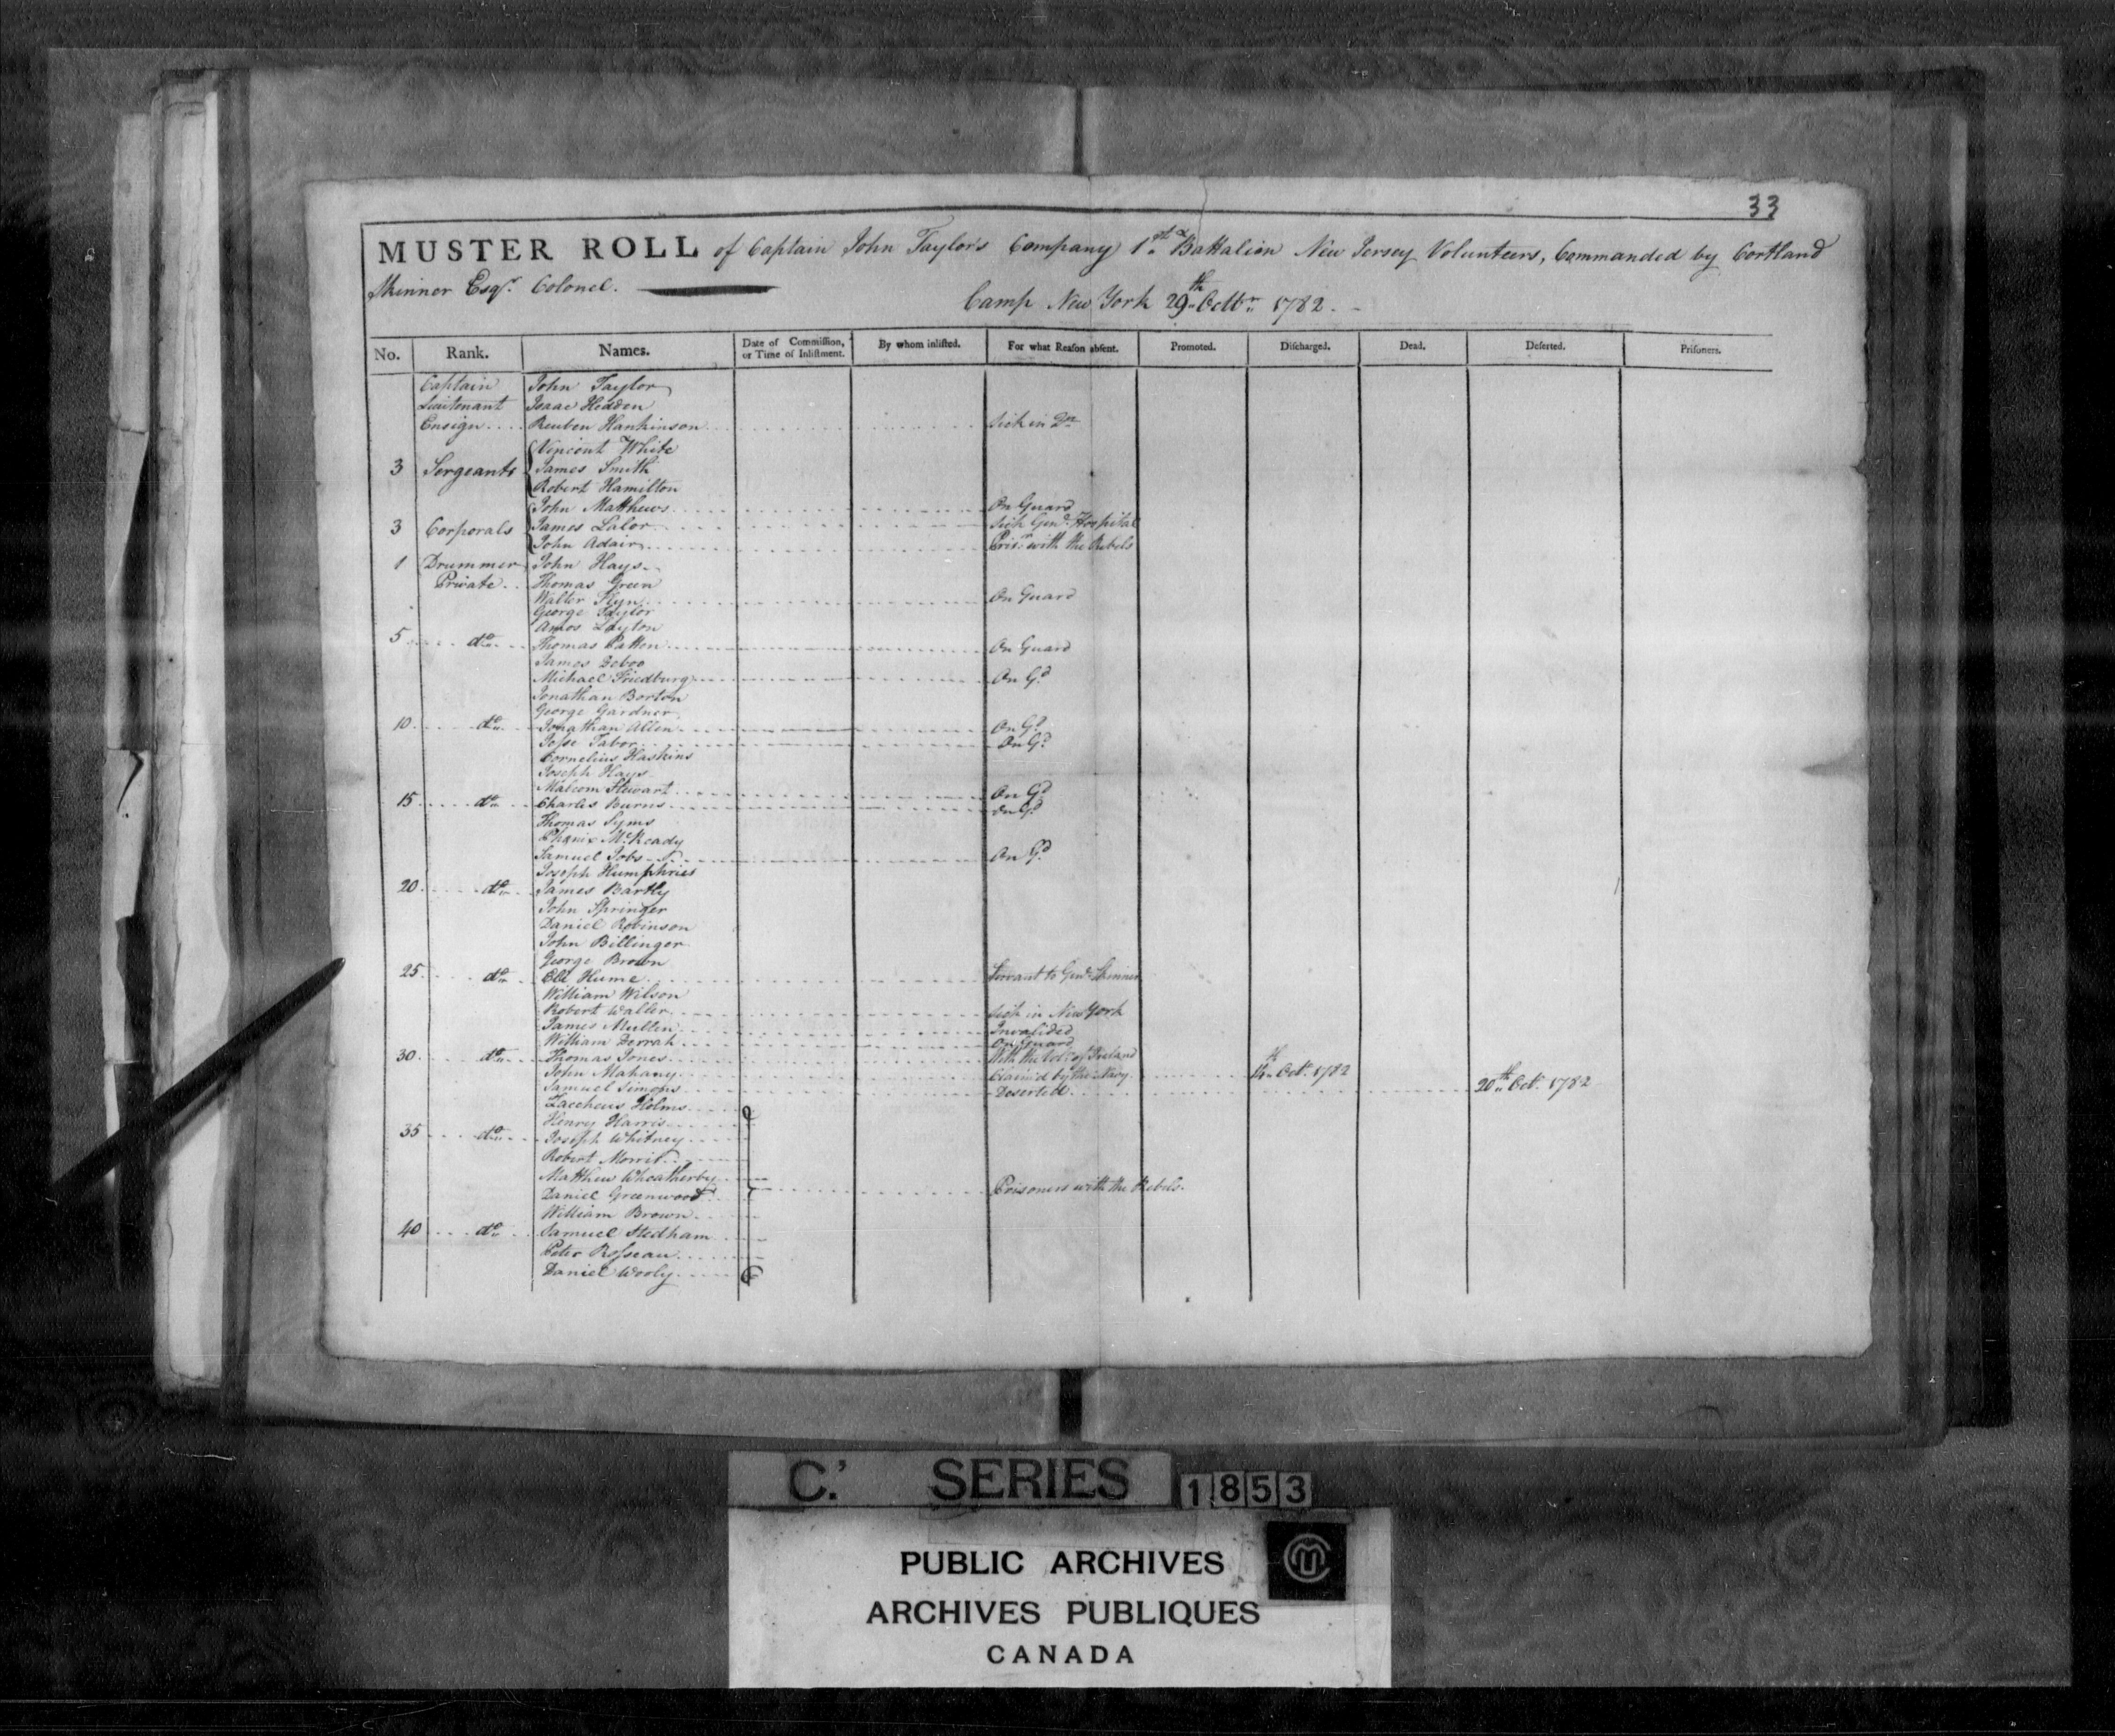 33
MUSTER ROLL of Captain John Taylor's Company 1st Battalion New Jersey Volunteers, Commanded by Cortland
Skinner Esqr. Colonel.
Camp New York 29th Octbr. 1782.
No. Rank. Names. Date of Commission, or Time of Inlistment. By whom inlisted. For what Reason absent. Promoted. Discharged. Dead. Deserted. Prisoners.
Captain John Taylor
Lieutenant Isaac Hedden
Ensign Reuben Hankinson Sick in Dn
Vincent White
3 Sergeants James Smith
Robert Hamilton
John Matthews On Guard
3 Corporals James Lalor Sick Genl. Hospital
John Adair Prisr. with the Rebels
1 Drummer John Hays
Private Thomas Green
Walter Flyn On Guard
George Taylor
Amos Layton
5 do. Thomas Patton On Guard
James Deboo
Michael Friedburg On Gd.
Jonathan Borton
George Gardner
10 do. Jonathan Allen On Gd.
Jesse Tabor On Gd.
Cornelius Haskins
Joseph Hays
Malcom Stewart On Gd.
15 do. Charles Burns On Gd.
Thomas Syms
Phenix McKeady
Samuel Jobs On Gd.
Joseph Humphries
20 do. James Bartly
John Springer
Daniel Robinson
John Billinger
George Brown
25 do. Eli Hume Servant to Genl. Skinner
William Wilson
Robert Waller Sick in New York
James Mullen Invalided
William Derrah On Guard
30 do. Thomas Jones With the Vols. of Ireland
John Mahany Claim'd by the Navy Octr. 1782
Samuel Simons Deserted 20th Oct. 1782
Zaccheus Holms
Henry Harris
35 do. Joseph Whitney
Robert Morris
Matthew Wheatherby
Daniel Greenwood Prisoners with the Rebels.
William Brown
40 do. Samuel Stedham
Peter Rosseau
Daniel Wooly
C. SERIES 1853
PUBLIC ARCHIVES
ARCHIVES PUBLIQUES
CANADA